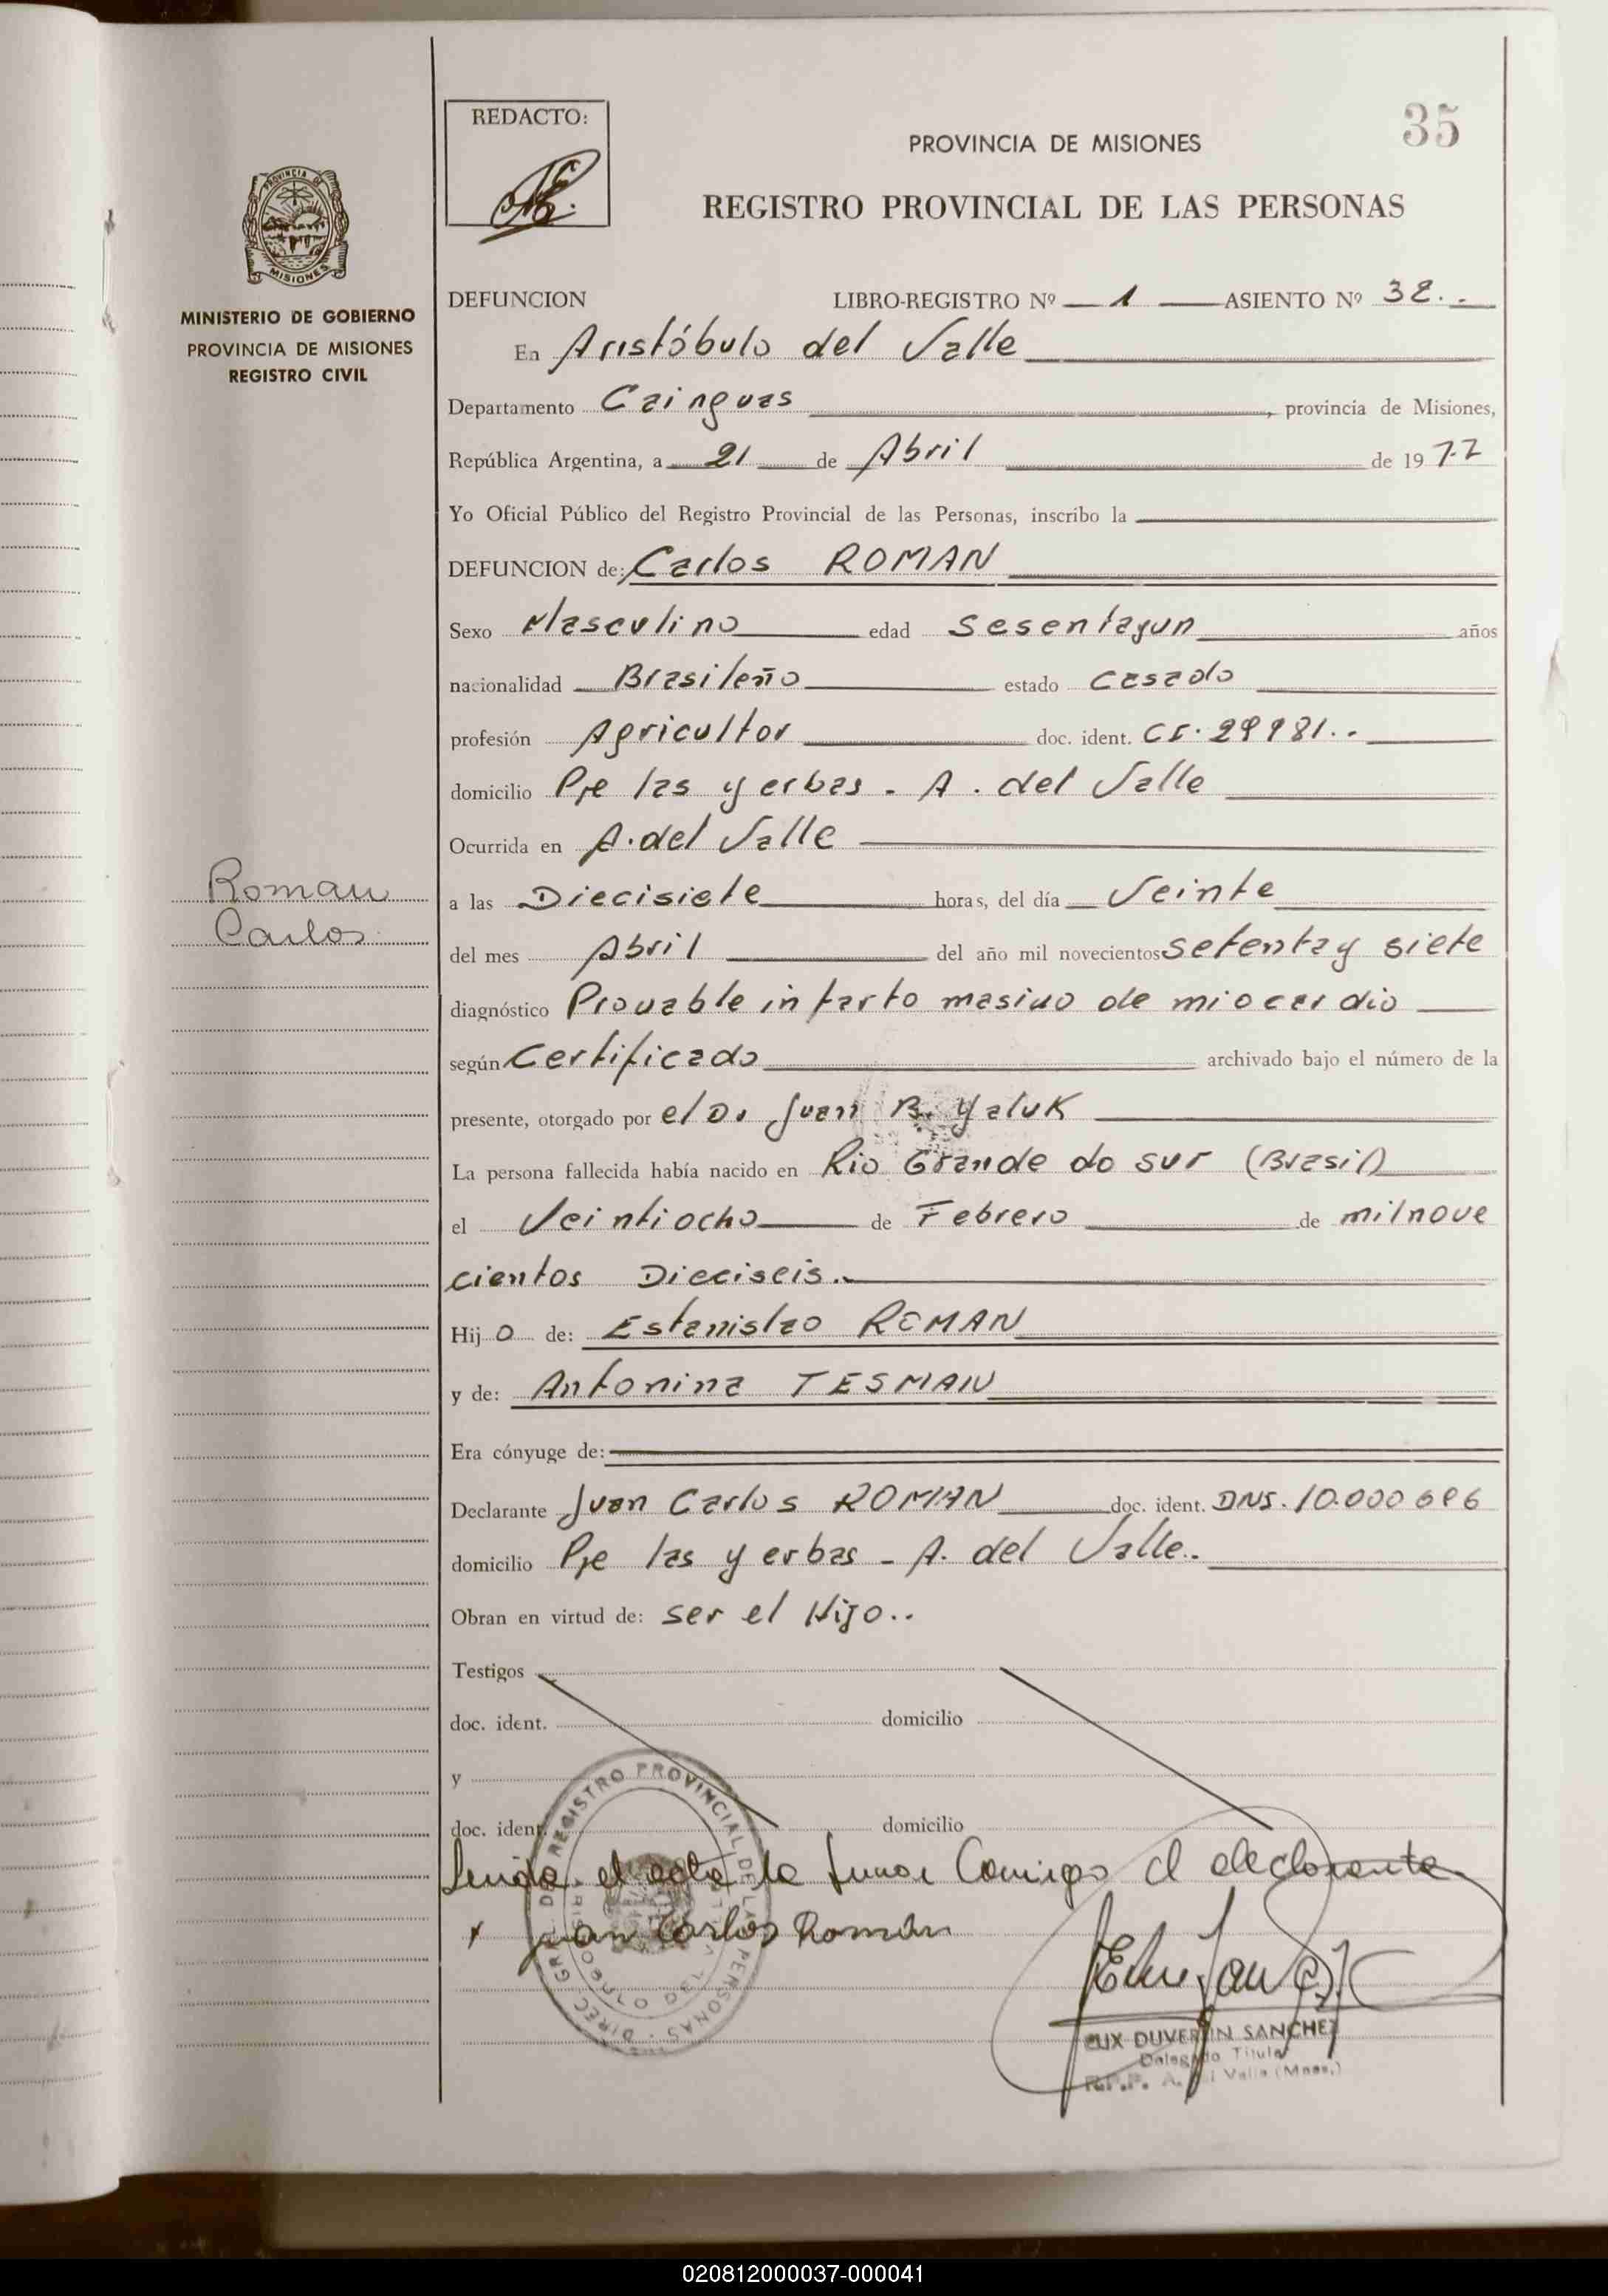 35
REDACTO:
PROVINCIA DE MISIONES
REGISTRO PROVINCIAL DE LAS PERSONAS
PROVINCIA DE
MISIONES
MINISTERIO DE GOBIERNO
PROVINCIA DE MISIONES
REGISTRO CIVIL
DEFUNCION LIBRO-REGISTRO Nº 1 ASIENTO Nº 38..
En Aristóbulo del Valle
Departamento Cainguas, provincia de Misiones,
República Argentina, a 21 de Abril de 1977
Yo Oficial Público del Registro Provincial de las Personas, inscribo la
DEFUNCION de: Carlos ROMAN
Sexo Masculino edad Sesentayun años
nacionalidad Brasileño estado Casado
profesión Agricultor doc. ident.
domicilio Pje las yerbas - A. del Valle
Ocurrida en A. del Valle
Roman
Carlos
a las Diecisiete horas, del día Veinte
del mes Abril del año mil novecientos setentay siete
diagnóstico Provable infarto masivo de miocardio
según Certificado archivado bajo el número de la
presente, otorgado por el Dr Juan B. Yaluk
La persona fallecida había nacido en Rio Grande do sur (Brasil)
el Veintiocho de Febrero de milnove
cientos Dieciseis.
Hijo de: Estanislao ROMAN
y de: Antonina TESMAN
Era cónyuge de:
Declarante Juan Carlos ROMAN doc. ident. DNI. 10.000696
domicilio Pje las yerbas - A. del Valle.
Obran en virtud de: ser el Hijo..
Testigos
doc. ident. domicilio
y
doc. ident. domicilio
el acta la Conmigo el declarante
x Juan Carlos Román
REGISTRO PROVINCIAL DE LAS PERSONAS - DIREC. GRAL. DEL
SANCHEZ
Delegado Titular
R.P.P. A. del Valle (Mnes.)
020812000037-000041